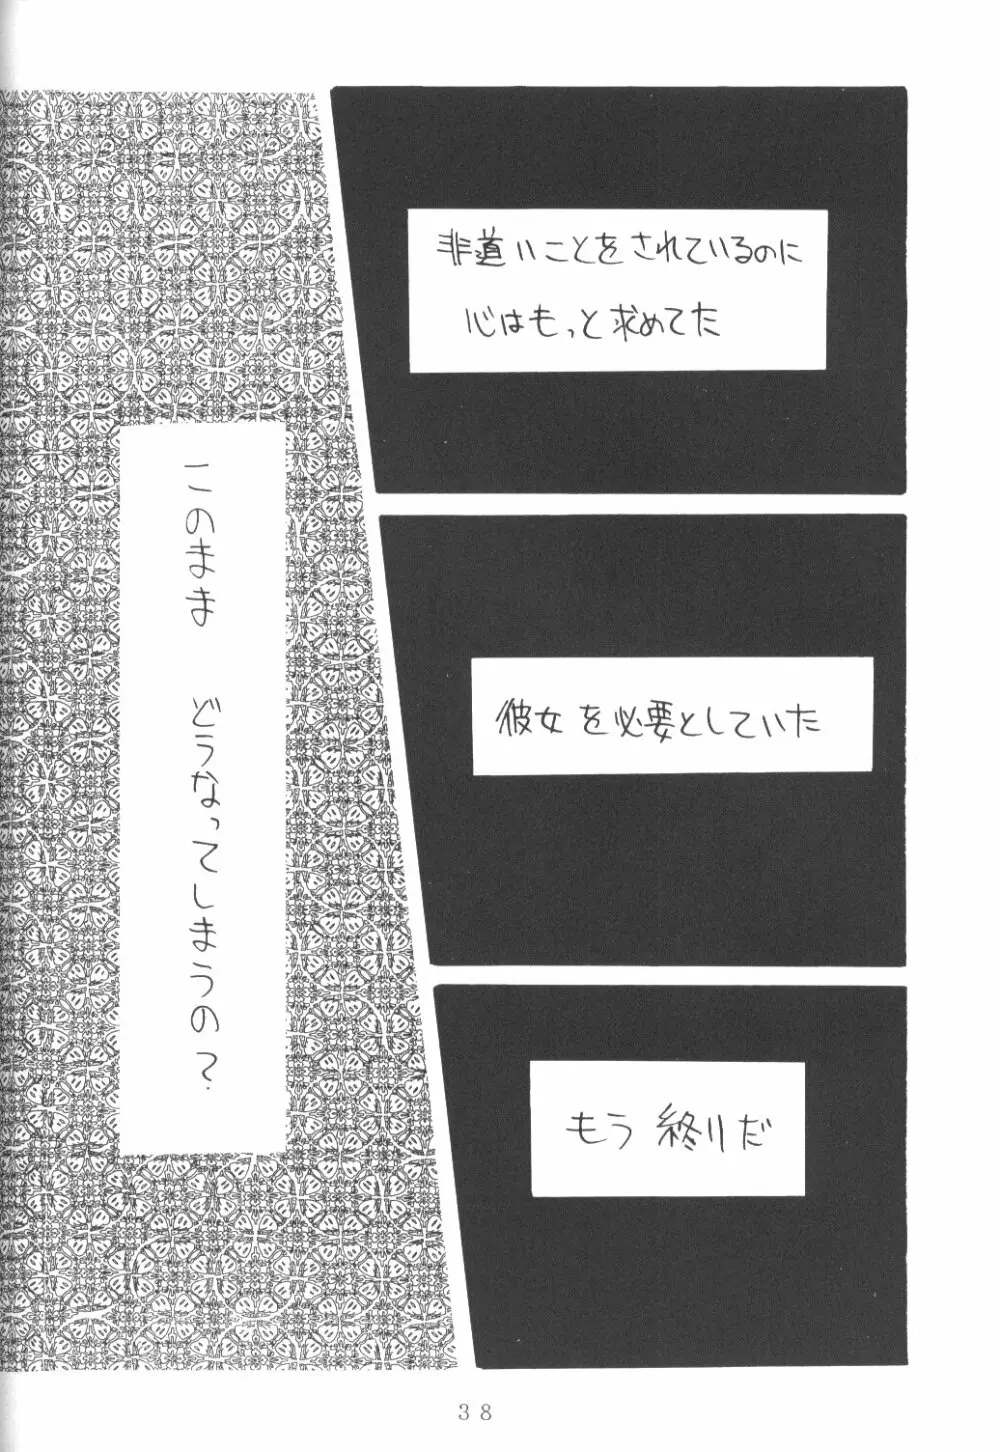 非道いことをされているのに
心はもっと求めてた
彼女を必要としていた
もう終りだ
このまま どうなってしまうの?
38